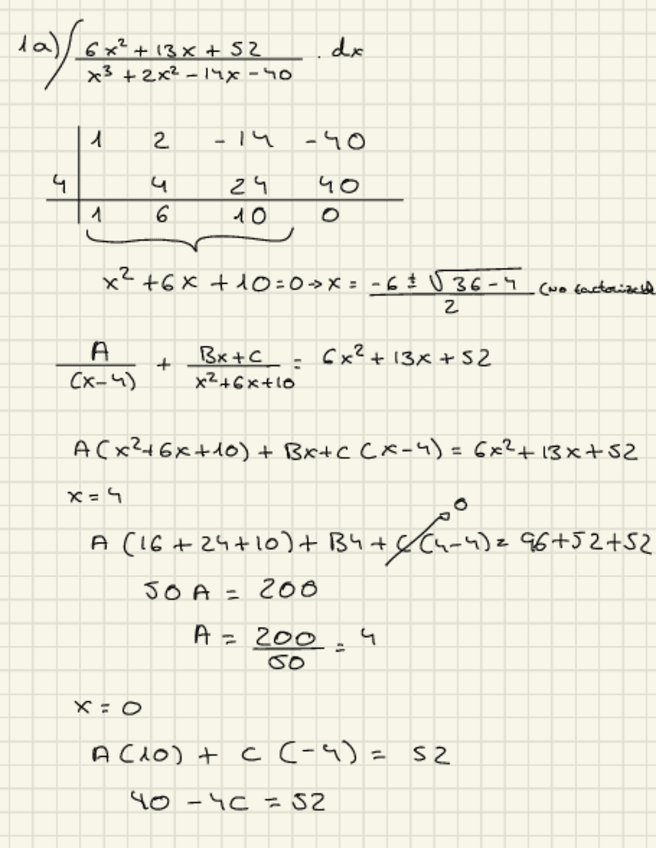 1a) ∫ (6x² + 13x + 52)/(x³ + 2x² - 14x - 40) . dx
1 2 -14 -40
4 4 24 40
1 6 10 0
x² + 6x + 10 = 0 → x = (-6 ± √(36-4))/2 (No factorizable
A/(x-4) + (Bx+C)/(x²+6x+10) = 6x² + 13x + 52
A(x²+6x+10) + Bx+C (x-4) = 6x² + 13x + 52
x = 4
A (16 + 24 + 10) + B4 + C(4-4) = 96 + 52 + 52
0
50 A = 200
A = 200/50 = 4
x = 0
A(10) + C (-4) = 52
40 - 4C = 52